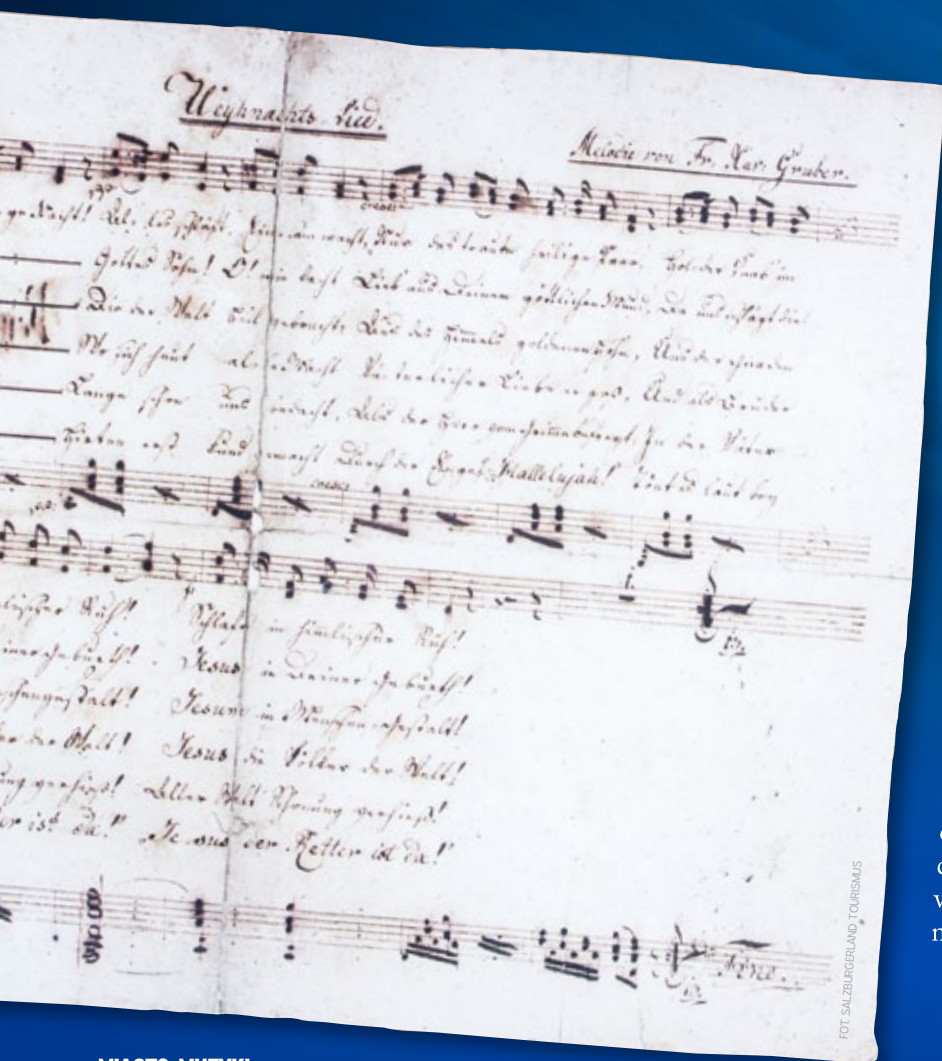 Weyhnachts-Lied.
Melodie von Fr. Xav. Gruber.
Nacht! Alles schläft. Einsam wacht, Nur das traute heilige Paar. Holder Knab' im
Gottes Sohn! O! wie lacht Lieb' aus Deinem göttlichen Mund, Da uns schlägt die
Die der Welt Heil gebracht, Aus des Himmels goldenen Höhn, Uns der Gnaden
Wo sich heut alle Macht Väterlicher Liebe ergoß, Und als Bruder
Lange schon uns bedacht, Als der Herr vom Grimme befreyt, In der Väter
Hirten erst kund gemacht Durch der Engel Hallelujah! Tönt es laut bey
Ruh! Schlafe in himlischer Ruh!
Geburth! Jesus in Deiner Geburth!
Jesum in Menschengestalt!
der Welt! Jesus die Völker der Welt!
verhieß! Aller Welt Schonung verhieß!
ist da!" "Jesus der Retter ist da!"
Fine.
FOT. SALZBURGERLAND TOURISMUS
MIASTO MUZYKI